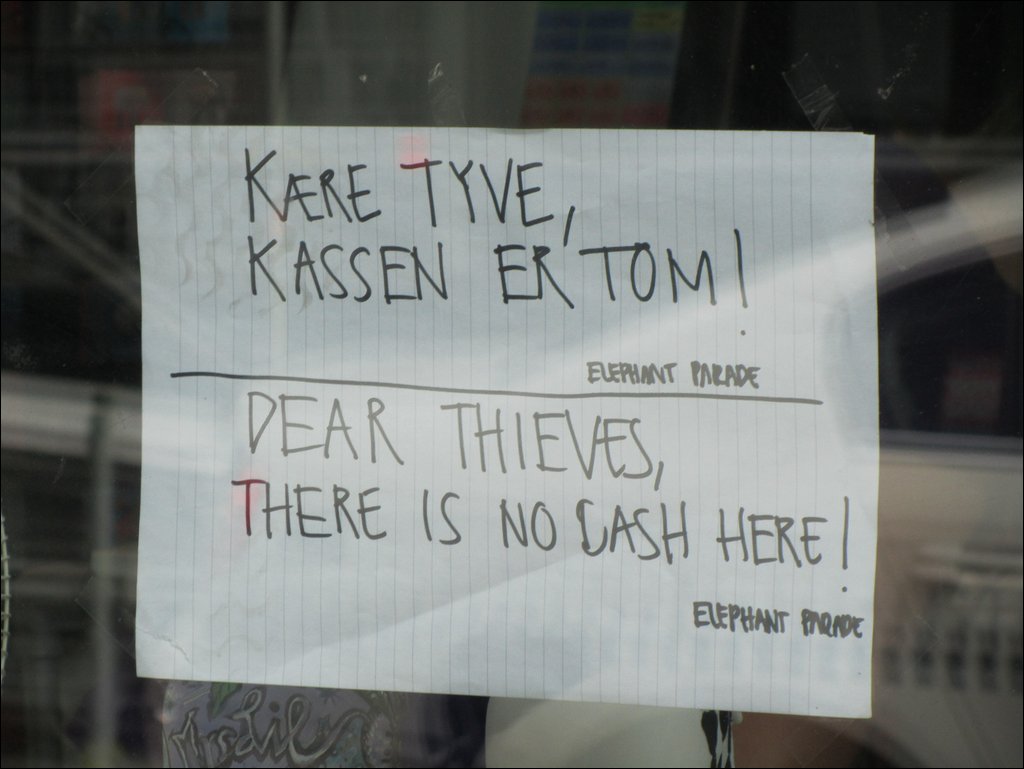 KÆRE TYVE,
KASSEN ER TOM!
ELEPHANT PARADE
DEAR THIEVES,
THERE IS NO CASH HERE!
ELEPHANT PARADE